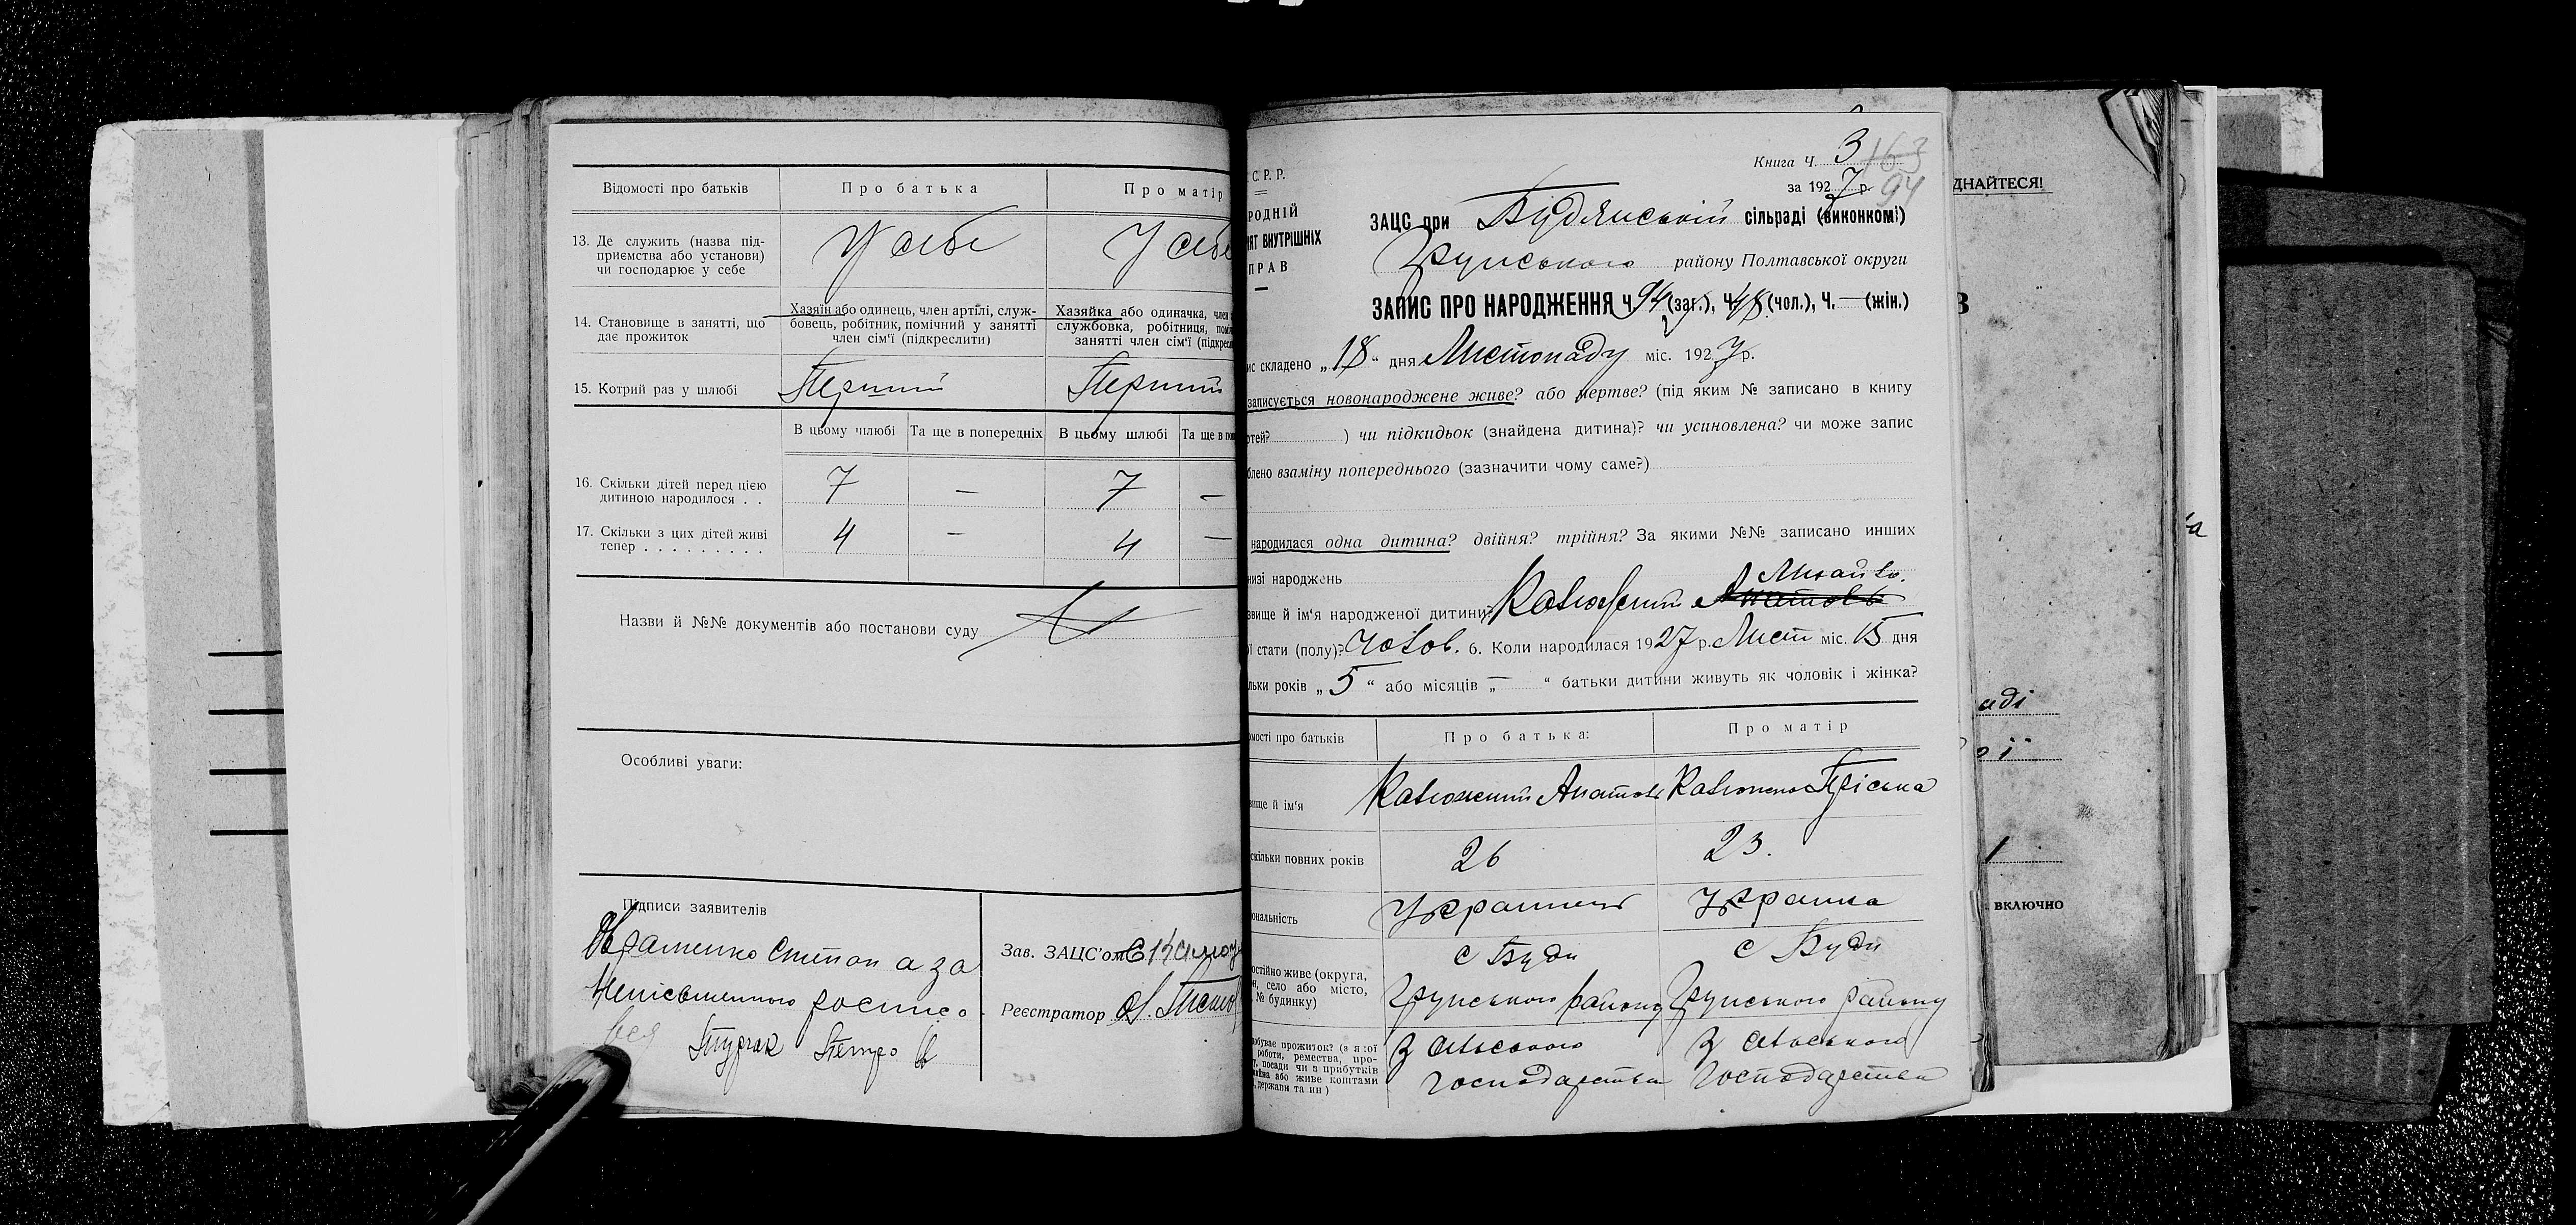 Відомості про батьків
Про батька
Про матір
13. Де служить (назва під-
приємства або установи)
чи господарює у себе
У себе
У себе
14. Становище в занятті, що
дає прожиток
Хазяїн або одинець, член артілі, служ-
бовець, робітник, помічний у занятті
член сім'ї (підкреслити)
Хазяйка або одиначка, член
службовка, робітниця,
занятті член сім'ї
15. Котрий раз у шлюбі
Перший
Перший
В цьому шлюбі
Та ще в попередніх
В цьому шлюбі
Та ще в
16. Скільки дітей перед цією
дитиною народилося . .
7 — 7 —
17. Скільки з цих дітей живі
тепер . . . . . . . . .
4 — 4 —
Назви й №№ документів або постанови суду
Особливі уваги:
Підписи заявителів
Степан а за
росписо
вся Петро
Зав. ЗАЦС'ом
Реєстратор
Книга Ч. 3
163
за 1927 р.
94
С. Р. Р.
РОДНІЙ
ЯТ ВНУТРІШНІХ
ПРАВ
ЗАЦС при Будянській сільраді (виконкомі)
Грунського району Полтавської округи
ЗАПИС ПРО НАРОДЖЕННЯ Ч. 94 (заг.), Ч. 48 (чол.), Ч. — (жін.)
ис складено „18“ дня Листопаду міс. 1927 р.
записується новонароджене живе? або мертве? (під яким № записано в книгу
ртей? ) чи підкидьок (знайдена дитина)? чи усиновлена? чи може запис
блено взаміну попереднього (зазначити чому саме?)
народилася одна дитина? двійня? трійня? За якими №№ записано инших
низі народжень
Михайло.
звище й ім'я народженої дитини? Калюжний Анатоль
ї стати (полу)? Чолов. 6. Коли народилася 1927 р. Лист міс. 15 дня
льки років „5“ або місяців „—“ батьки дитини живуть як чоловік і жінка?
омості про батьків
Про батька:
Про матір
звище й ім'я
Калюжний Анатоль
Калюжна Пріська
скільки повних років
26
23.
ональність
Украинець
Украинка
остійно живе (округа,
н, село або місто,
№ будинку)
с Буди
Грунського району
с Буди
Грунського району
обуває прожиток? (з якої
роботи, ремества, про-
, посади чи з прибутків
майна або живе коштами
, держави та ин)
З сільського
господарства
З сільського
господарства
ДНАЙТЕСЯ!
В
аді
ої
1
ВКЛЮЧНО